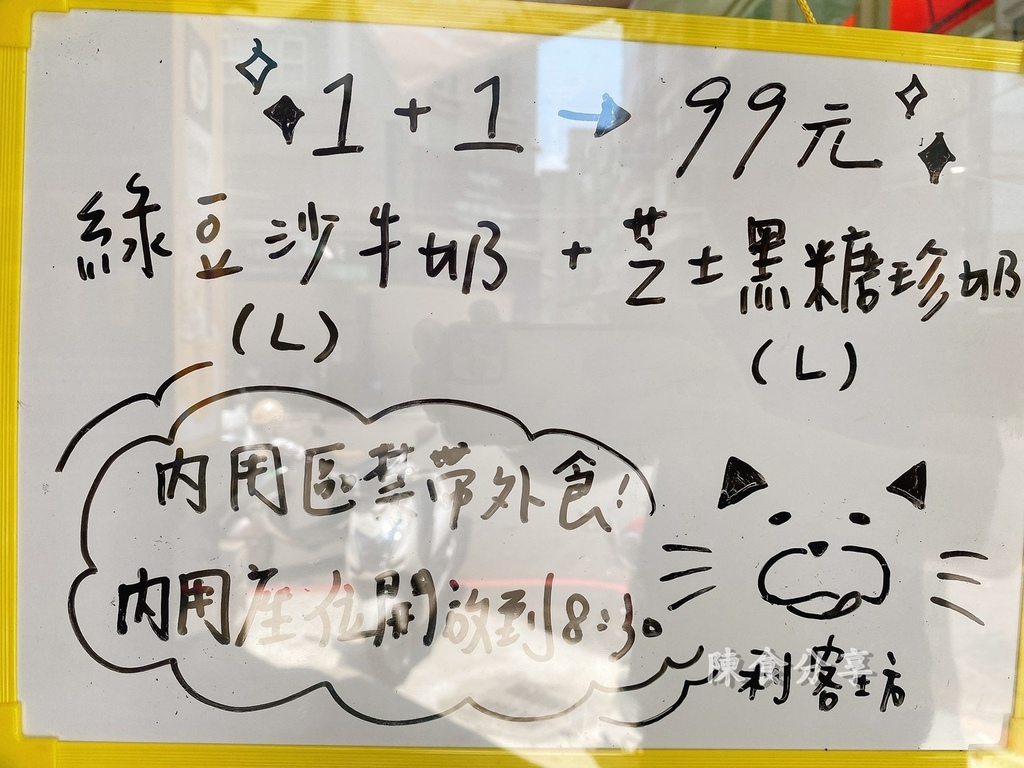 1+1→99元
綠豆沙牛奶+芝士黑糖珍奶
(L) (L)
內用區禁帶外食!
內用座位開放到8:30
陳食分享
利客坊